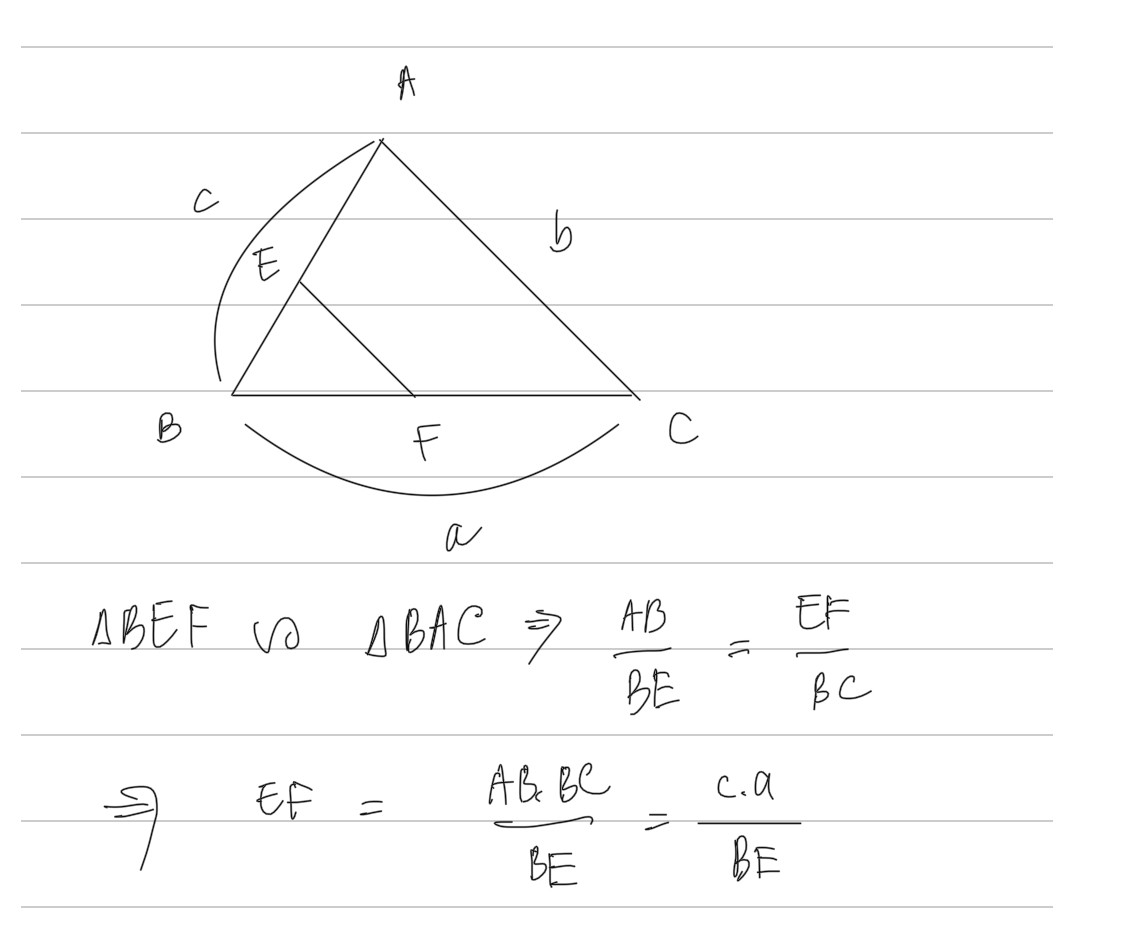 A
c
b
E
B
F
C
a
ΔBEF ∽ ΔBAC ⇒ AB/BE = EF/BC
⇒ EF = AB.BC/BE = c.a/BE